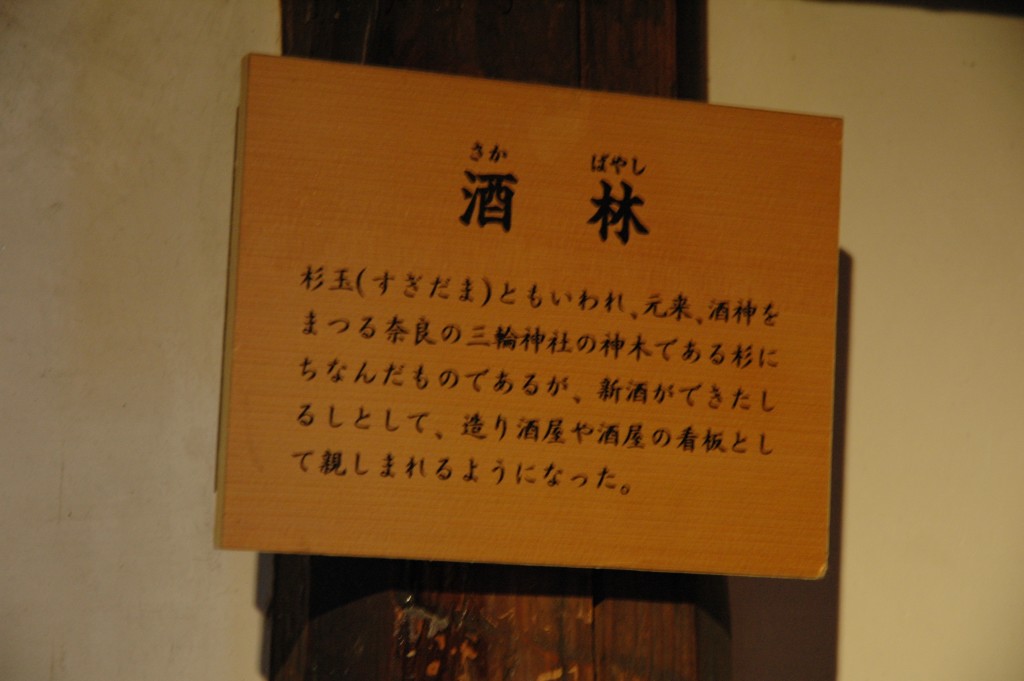 さか ばやし
酒 林
杉玉(すぎだま)ともいわれ、元来、酒神を
まつる奈良の三輪神社の神木である杉に
ちなんだものであるが、新酒ができたし
るしとして、造り酒屋や酒屋の看板とし
て親しまれるようになった。